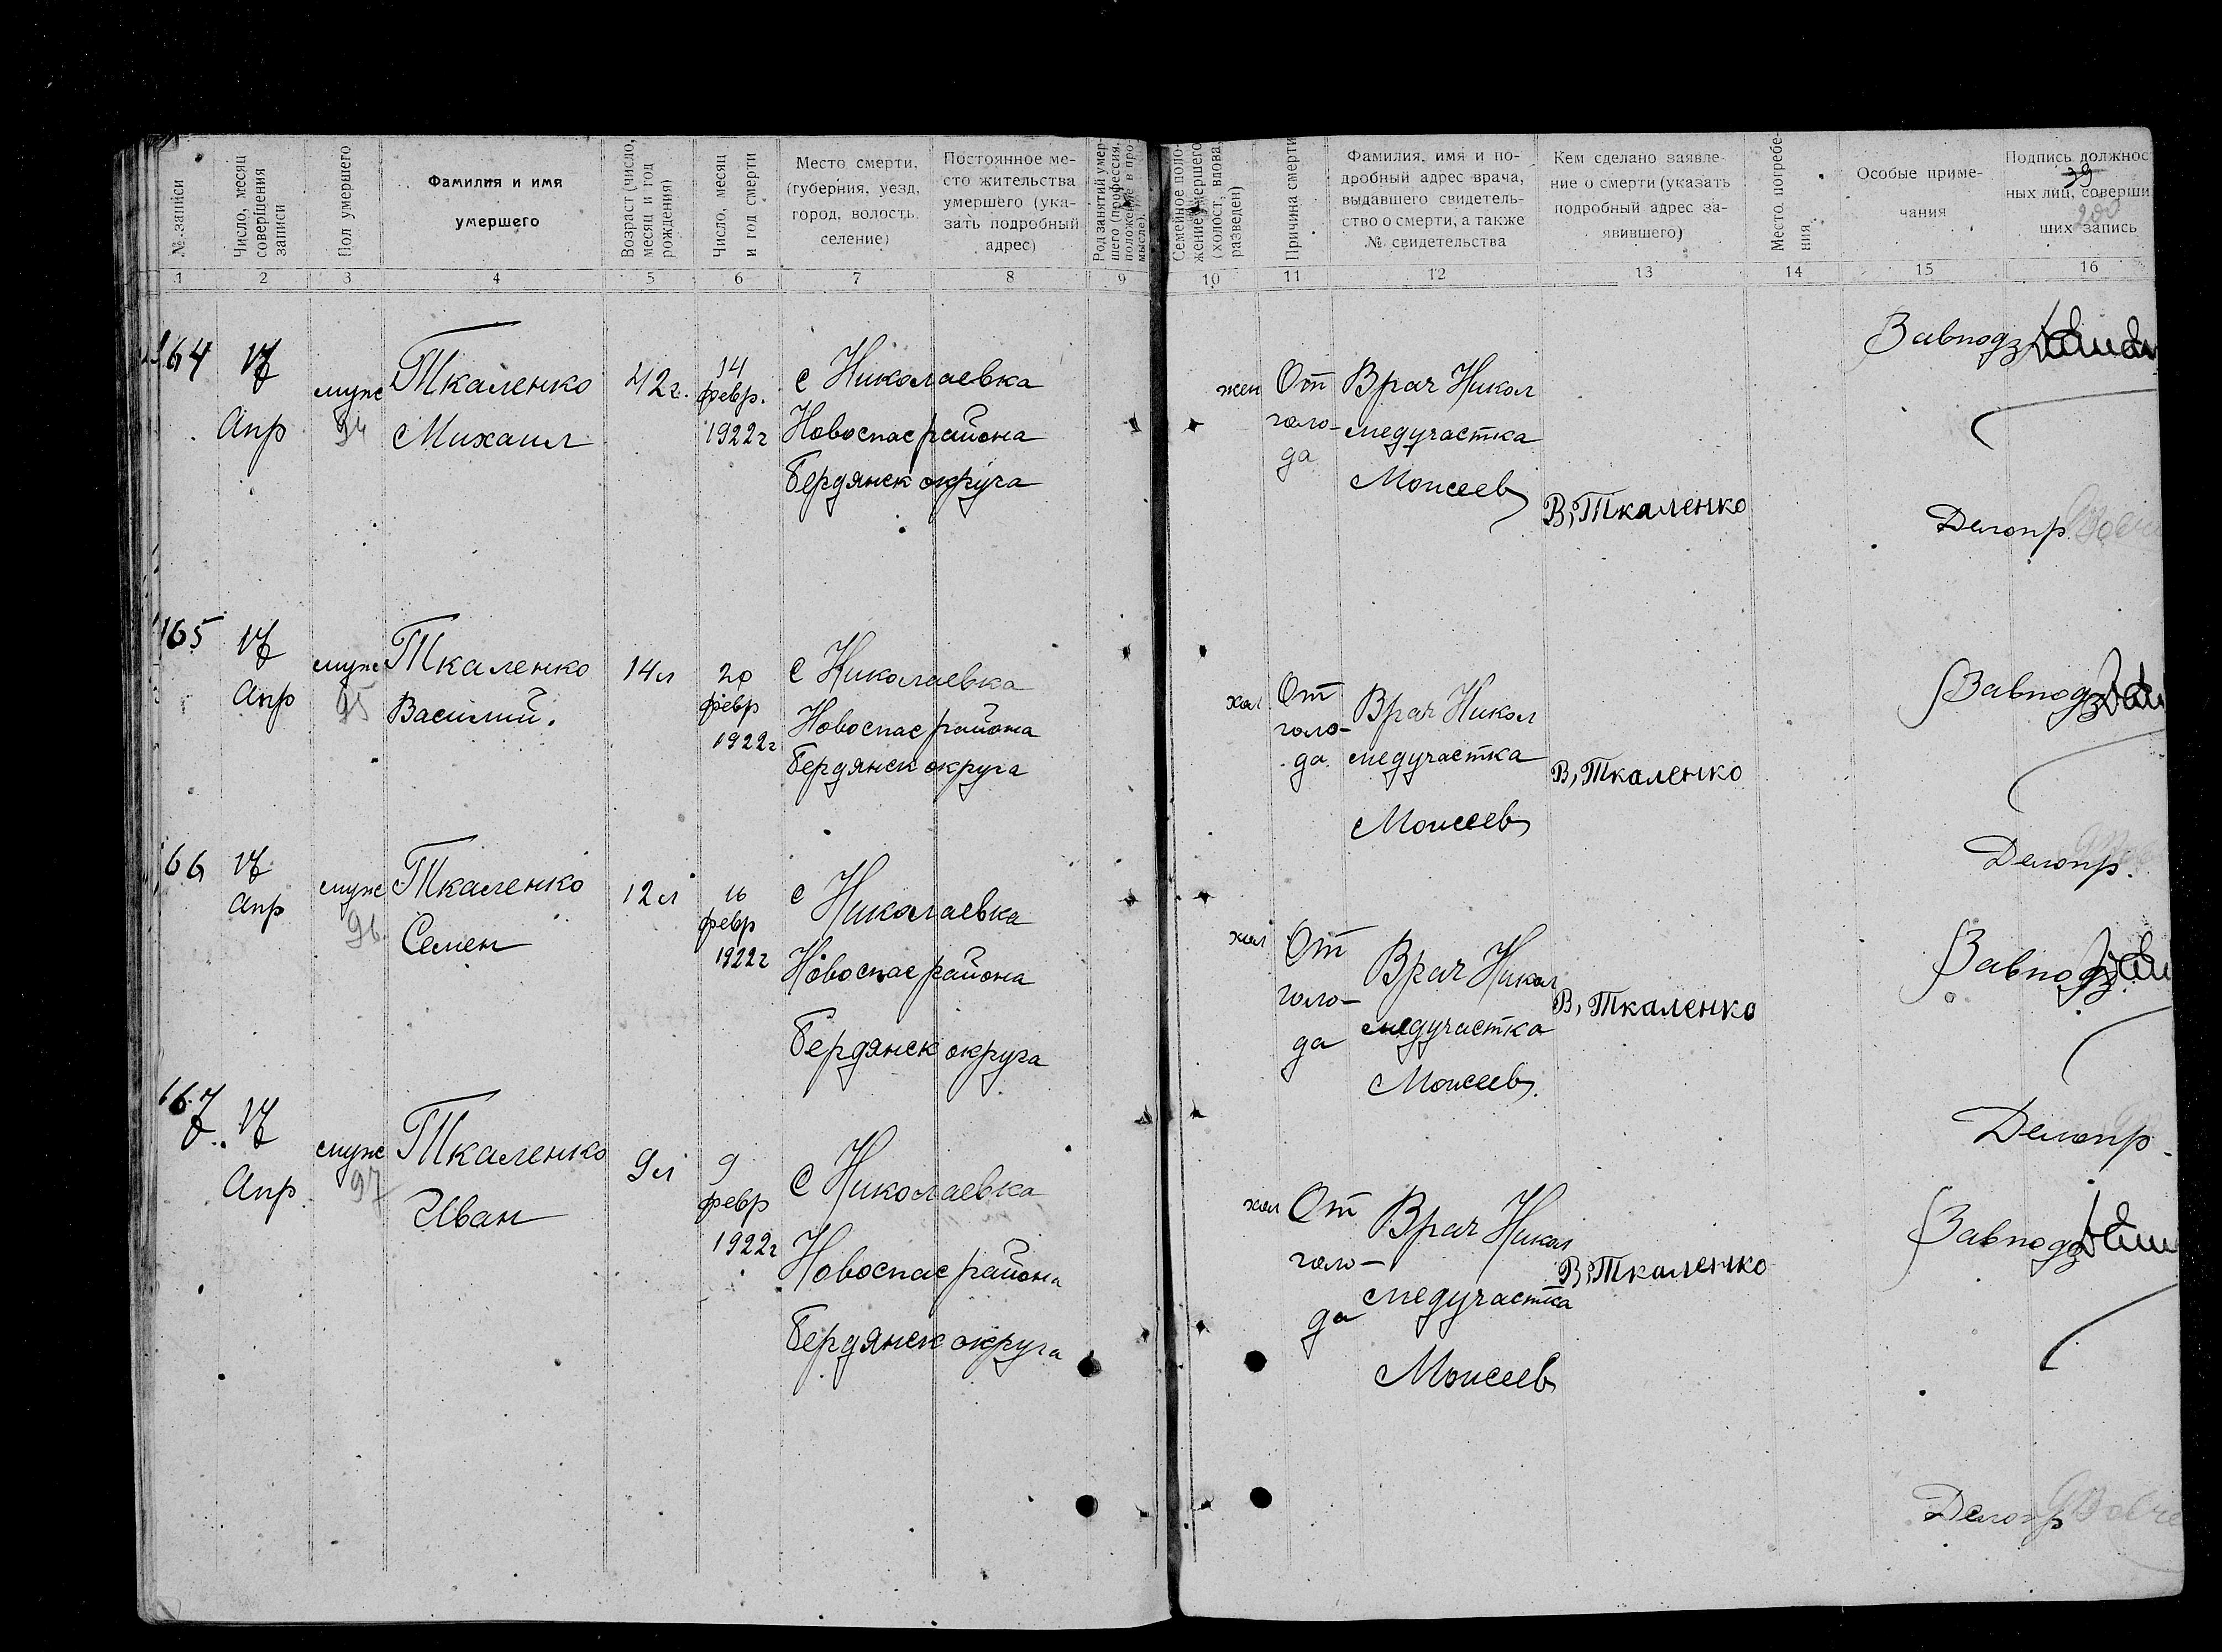 № записи
Число, месяц
совершения
записи
Пол умершего
Фамилия и имя
умершего
Возраст (число,
месяц и год
рождения)
Число, месяц
и год смерти
Место смерти.
(губерния, уезд,
город, волость,
селение)
Постоянное ме-
сто жительства
умершего (ука-
зать подробный
адрес)
Род занятий умер-
шего (профессия,
положение в про-
мысле).
Семейное поло-
жение умершего
(холост, вдова,
разведен)
Причина смерти
Фамилия, имя и по-
дробный адрес врача,
выдавшего свидетель-
ство о смерти, а также
№ свидетельства
Кем сделано заявле-
ние о смерти (указать
подробный адрес за-
явившего)
Место погребе-
ния.
Особые приме-
чания
Подпись должнос
39
ных лиц, соверши
200
ших запись
1 2 3 4 5 6 7 8 9 10 11 12 13 14 15 16
164
17
Апр
муж
94
Ткаленко
Михаил
42 г.
14
февр.
1922 г
с Николаевка
Новоспас района
Бердянск округа
жен
От
голо-
да
Врач Никол
медучастка
Моисеев
В, Ткаленко
Завподз
Делопр
165
17
Апр
муж
95
Ткаленко
Василий.
14 л
20
февр
1922 г
с Николаевка
Новоспас района
Бердянск округа
хол
От
голо-
да
Врач Никол
медучастка
Моисеев
В, Ткаленко
Завподз
Делопр.
166
17
Апр
муж
96.
Ткаленко
Семен
12 л
16
февр
1922 г
с Николаевка
Новоспас района
Бердянск округа
хол
От
голо-
да
Врач Никол
медучастка
Моисеев.
В, Ткаленко
Завподз.
Делопр.
167
17
Апр.
муж
97
Ткаленко
Иван
9 л
9
февр
1922 г
с Николаевка
Новоспас района
Бердянск округа
хол
От
голо-
да
Врач Никол
медучастка
Моисеев
В, Ткаленко
Завподз
Делопр